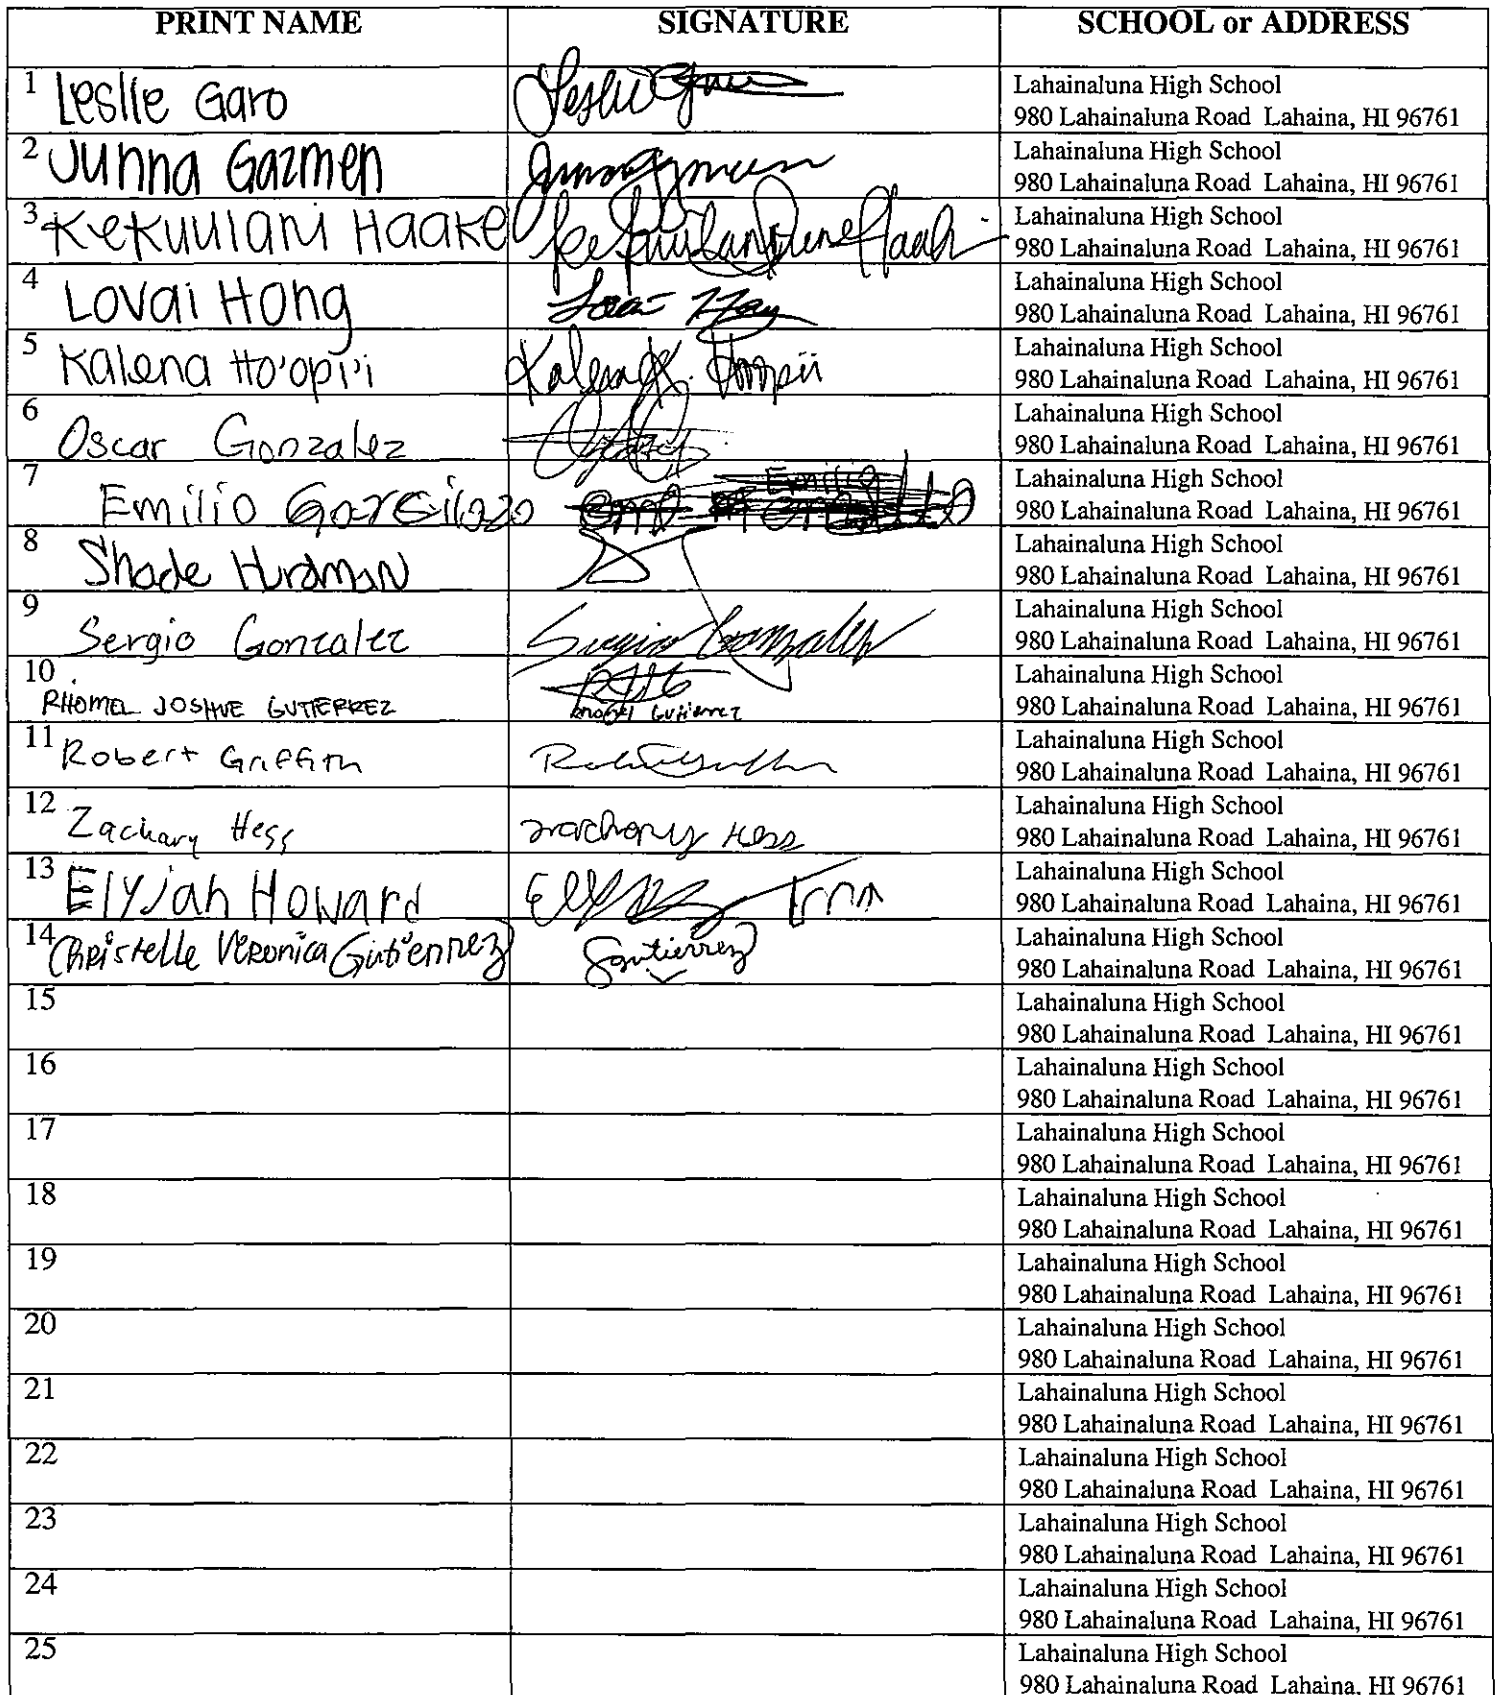 PRINT NAME SIGNATURE SCHOOL or ADDRESS
1 Leslie Garo Lahainaluna High School
980 Lahainaluna Road Lahaina, HI 96761
2 Junna Gazmen Lahainaluna High School
980 Lahainaluna Road Lahaina, HI 96761
3 Kekuulani Haake Lahainaluna High School
980 Lahainaluna Road Lahaina, HI 96761
4 Lovai Hong Lahainaluna High School
980 Lahainaluna Road Lahaina, HI 96761
5 Kalena Ho'opi'i Kalena K. Hoopii Lahainaluna High School
980 Lahainaluna Road Lahaina, HI 96761
6 Oscar Gonzalez Lahainaluna High School
980 Lahainaluna Road Lahaina, HI 96761
7 Emilio Emilio Lahainaluna High School
980 Lahainaluna Road Lahaina, HI 96761
8 Shade Hurdman Lahainaluna High School
980 Lahainaluna Road Lahaina, HI 96761
9 Sergio Gonzalez Sergio Gonzalez Lahainaluna High School
980 Lahainaluna Road Lahaina, HI 96761
10 RHOMEL JOSHUE GUTIERREZ Gutierrez Lahainaluna High School
980 Lahainaluna Road Lahaina, HI 96761
11 Robert Griffith Lahainaluna High School
980 Lahainaluna Road Lahaina, HI 96761
12 Zachary Hess Zachary Hess Lahainaluna High School
980 Lahainaluna Road Lahaina, HI 96761
13 Elyjah Howard Lahainaluna High School
980 Lahainaluna Road Lahaina, HI 96761
14 Christelle Veronica Gutierrez Gutierrez Lahainaluna High School
980 Lahainaluna Road Lahaina, HI 96761
15 Lahainaluna High School
980 Lahainaluna Road Lahaina, HI 96761
16 Lahainaluna High School
980 Lahainaluna Road Lahaina, HI 96761
17 Lahainaluna High School
980 Lahainaluna Road Lahaina, HI 96761
18 Lahainaluna High School
980 Lahainaluna Road Lahaina, HI 96761
19 Lahainaluna High School
980 Lahainaluna Road Lahaina, HI 96761
20 Lahainaluna High School
980 Lahainaluna Road Lahaina, HI 96761
21 Lahainaluna High School
980 Lahainaluna Road Lahaina, HI 96761
22 Lahainaluna High School
980 Lahainaluna Road Lahaina, HI 96761
23 Lahainaluna High School
980 Lahainaluna Road Lahaina, HI 96761
24 Lahainaluna High School
980 Lahainaluna Road Lahaina, HI 96761
25 Lahainaluna High School
980 Lahainaluna Road Lahaina, HI 96761